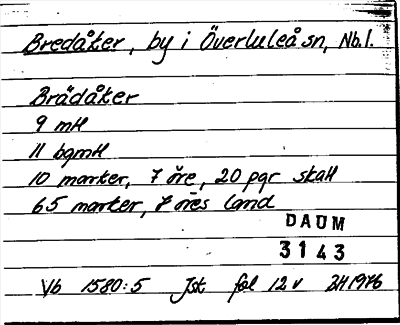 Bredåker, by i Överluleå sn, Nb.l.
Brädåker
9 mtl
11 bgmtl
10 marker, 7 öre, 20 pgr skatt
65 marker, 7 öres land
DAUM
3143
Vb 1580:5 Jsk fol 12 v 2H1976